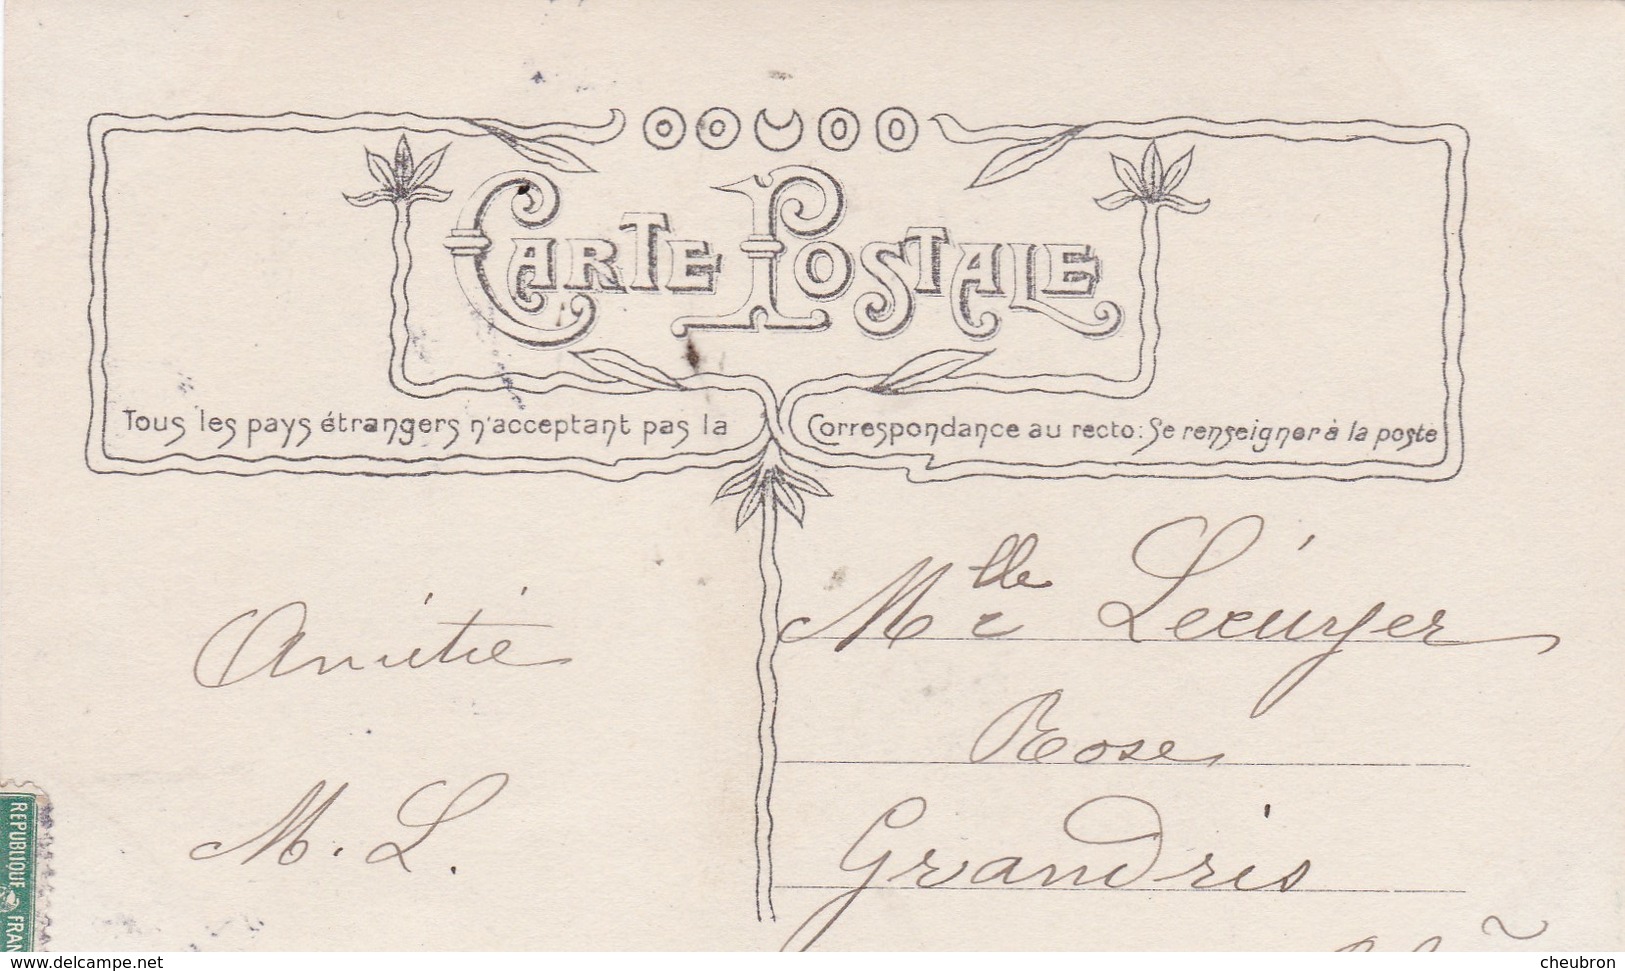 CARTE POSTALE
Tous les pays étrangers n'acceptant pas la Correspondance au recto: Se renseigner à la poste
Amitié
M. L.
Mlle Lécuyer
Rose
Grandris
REPUBLIQUE FRAN
www.delcampe.net
cheubron